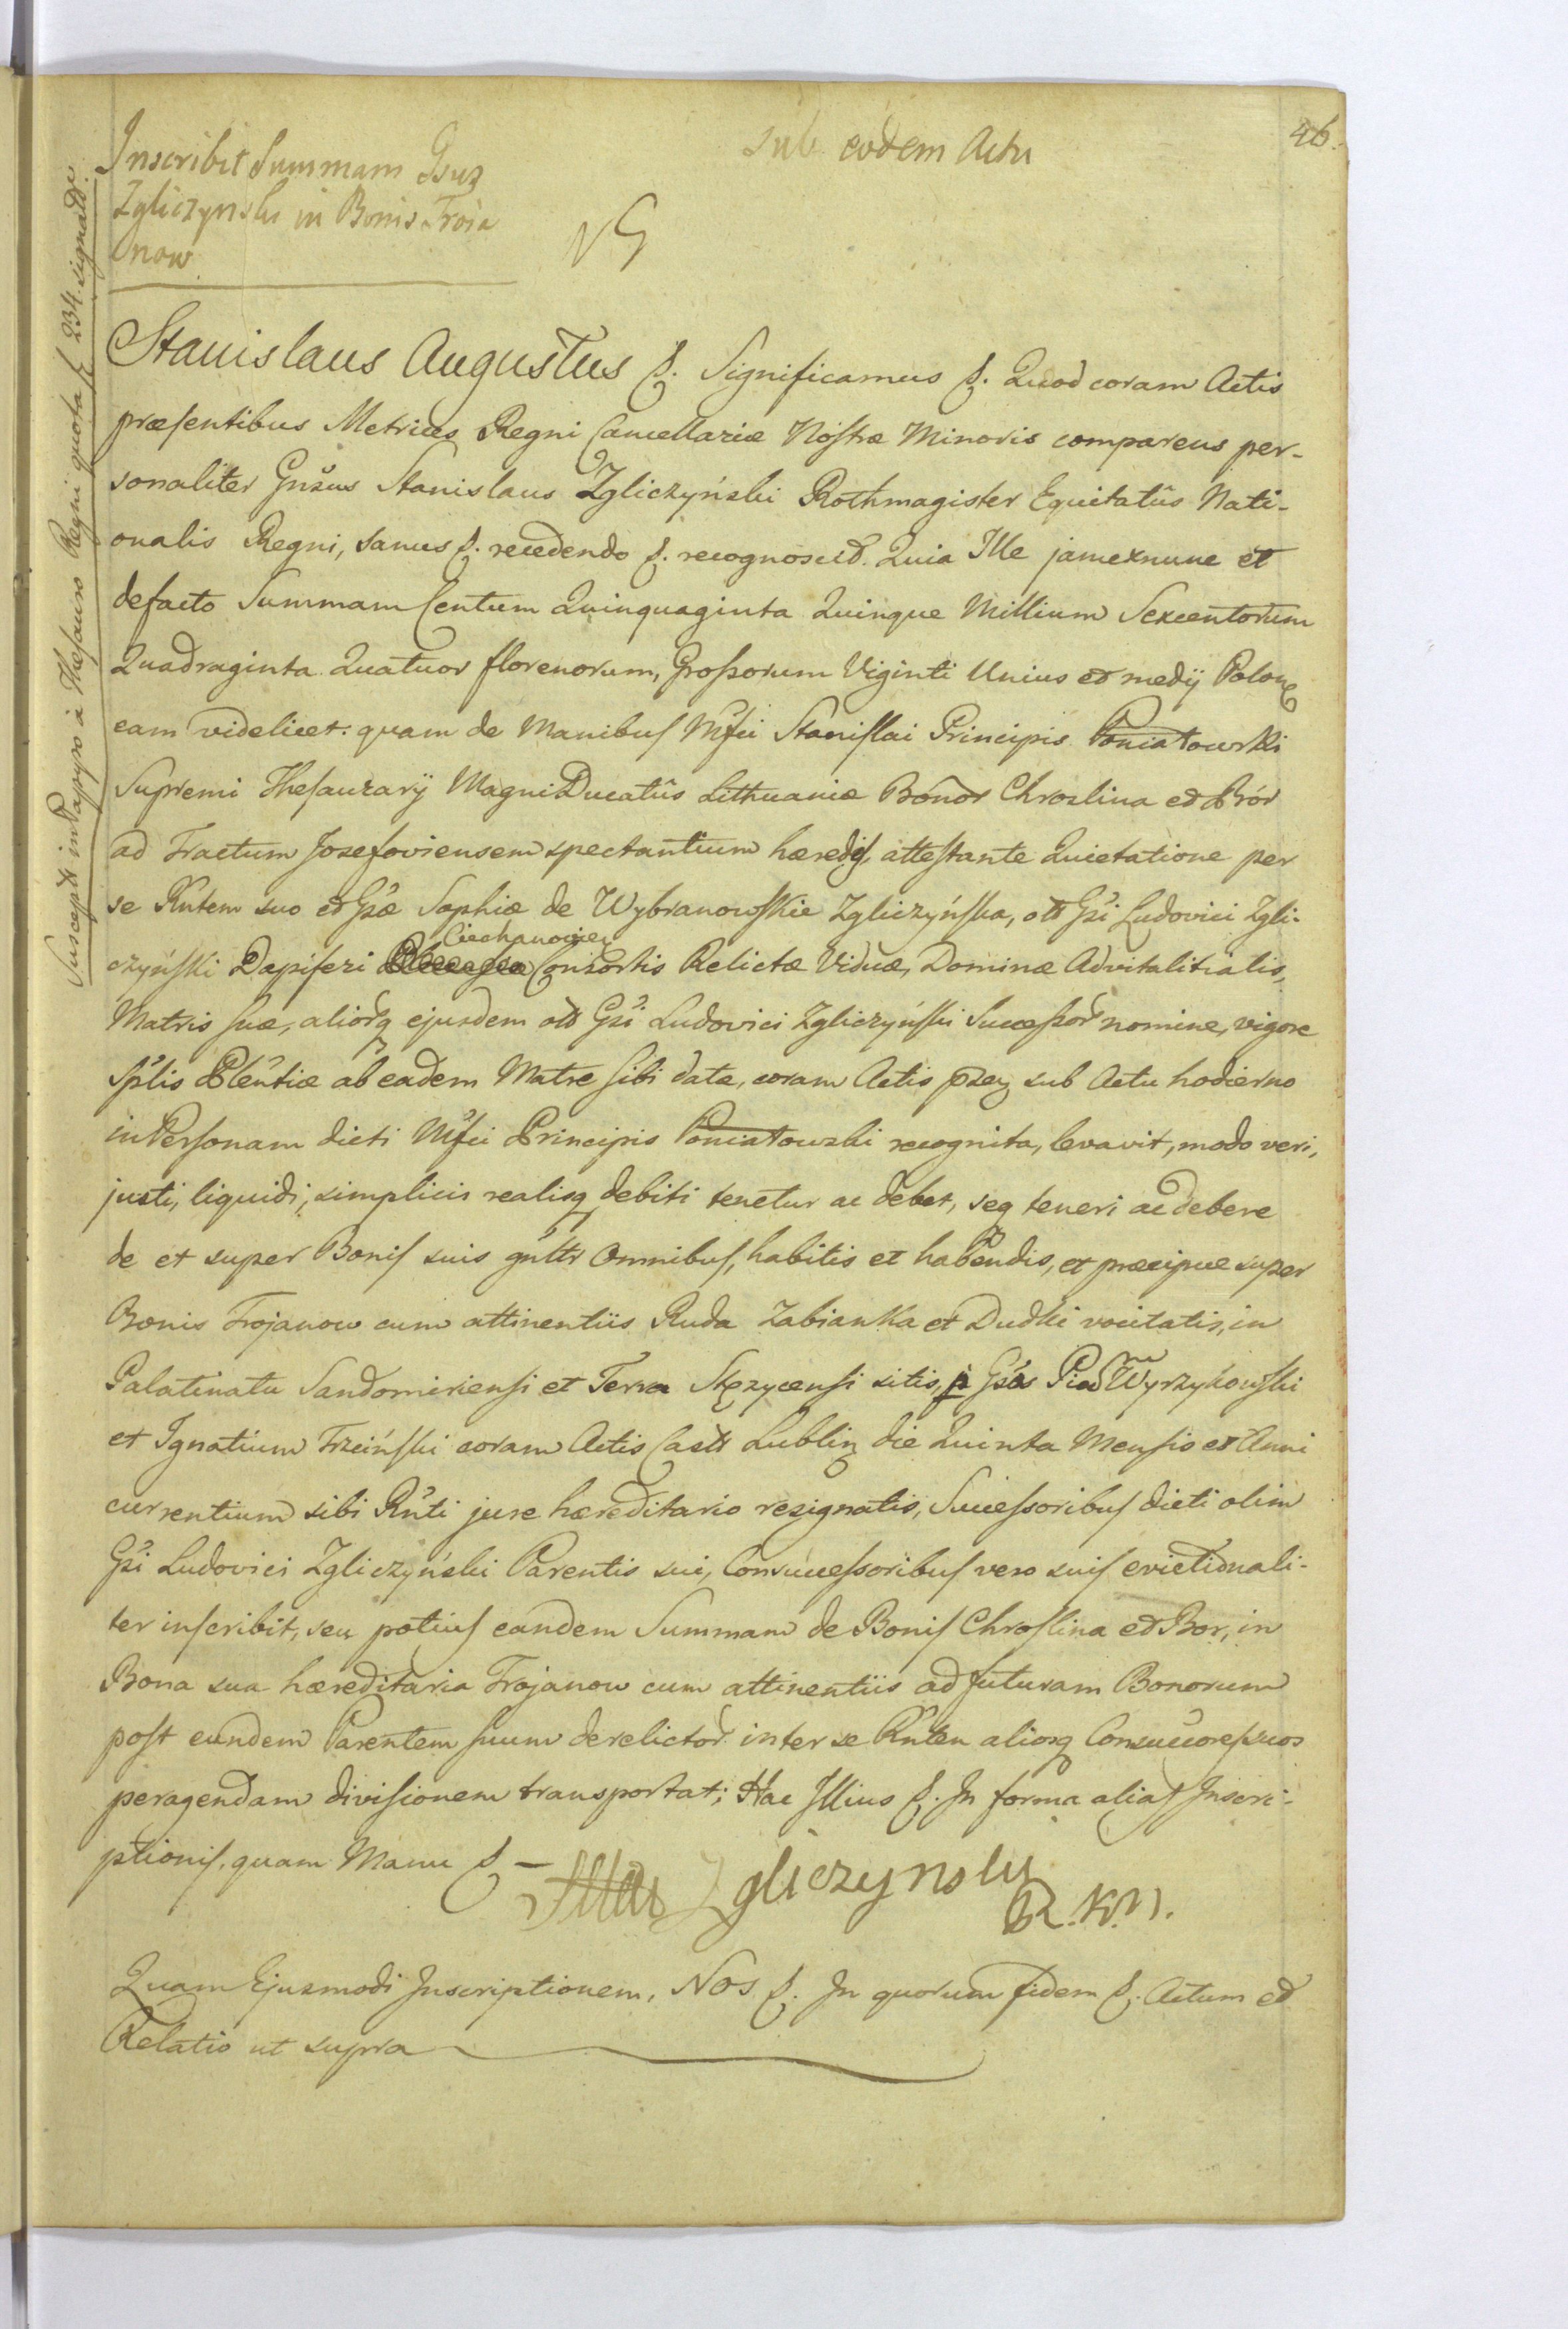 46.
sub eodem Actu
Inscribit Summam Gsus
Zgliczynski in Bonis Troia
now
NG
Suscepta in Papyro à Thesauro Regni quota f. 234. signata.
Stanislaus Augustus &. Significamus &. Quod coram Actis
præsentibus Metrices Regni Cancellariæ Nostræ Minoris comparens per-
sonaliter Gnsus Stanislaus Zgliczyński Rothmagister Equitatûs Nati-
onalis Regni, sanus &. recedendo &. recognovit. Quia Ille jamexnunc et
defacto Summam Centum Quinquaginta Quinque Millium Sexcentorum
Quadraginta Quatuor florenorum, Grossorum Viginti Unius et medij Polon
eam videlicet: quam de Manibus Mfci Stanislai Principis Poniatowski
Supremi Thesaurarij Magni Ducatûs Lithuaniæ Bonor Chroslina et Bór
ad Tractum Josefoviensem spectantium hæredis, attestante Quietatione per
se Rntem suo et Gsæ Sophiæ de Wybranowskie Zgliczyńska, olt Gsi Ludovici Zgli-
czyński Dapiferi Ciechanovien Consortis Relictæ Viduæ, Dominæ Advitalitialis,
Matris suæ, aliorq ejusdem olt Gsi Ludovici Zgliczyński Successor nomine, vigore
splis Plentiæ ab eadem Matre sibi datæ, coram Actis psen sub Actu hodierno
in Personam dicti Mfci Principis Poniatowski recognita, levavit, modo veri,
justi, liquidi, simplicis realisq debiti tenetur ac debet, seq teneri ac debere
de et super Bonis suis gnltr Omnibus, habitis et habendis, et præcipue super
Bonis Trojanow cum attinentiis Ruda Zabianka et Dudki vocitatis, in
Palatinatu Sandomiriensi et Terra Stęzycensi sitis, p Gsos Piad Wyrzykowski
et Ignatium Trzciński coram Actis Castr Lublin die Quinta Mensis et Anni
currentium sibi Rnti jure hæreditario resignatis, Successoribus dicti olim
Gsi Ludovici Zgliczyński Parentis sui, Consuccessoribus vero suis evictionali-
ter inscribit, seu potius eandem Summam de Bonis Chroslina et Bor, in
Bona sua hæreditaria Trojanow cum attinentiis ad futuram Bonorum
post eundem Parentem suum derelictor inter se Rnten aliosq Consuccores suos
peragendam divisionem transportat; Hac Illius &. In forma aliat Inscri-
ptionis, quam Manu & —
Zgliczynski
R.K.N.
Quam Ejusmodi Inscriptionem, Nos &. In quorum fidem &. Actum et
Relatio ut supra